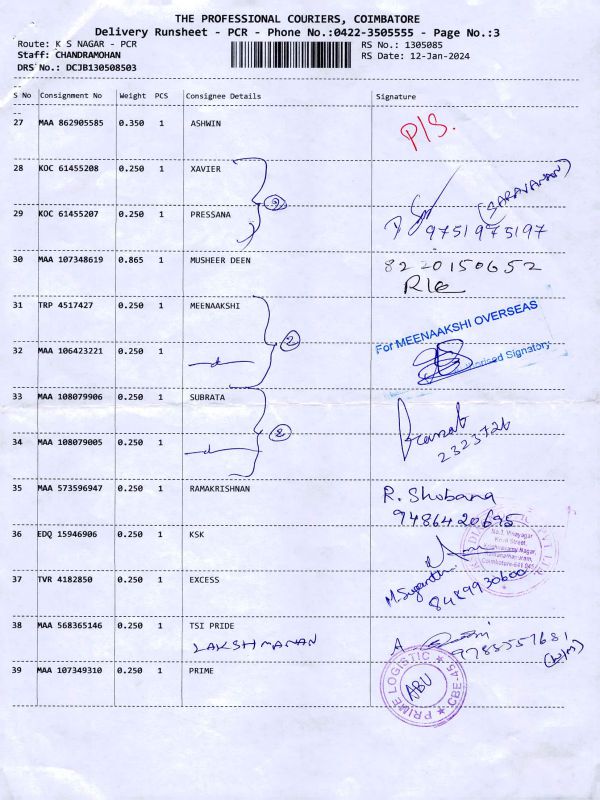 THE PROFESSIONAL COURIERS, COIMBATORE
Delivery Runsheet - PCR - Phone No.:0422-3505555 - Page No.:3
Route: K S NAGAR - PCR RS No.: 1305085
Staff: CHANDRAMOHAN RS Date: 12-Jan-2024
DRS No.: DCJB130508503
S No Consignment No Weight PCS Consignee Details Signature
27 MAA 862905585 0.350 1 ASHWIN
P/S.
28 KOC 61455208 0.250 1 XAVIER
(SARAVANAN)
2
29 KOC 61455207 0.250 1 PRESSANA
9751975197
30 MAA 107348619 0.865 1 MUSHEER DEEN 8220150652
31 TRP 4517427 0.250 1 MEENAAKSHI
2
For MEENAAKSHI OVERSEAS
32 MAA 106423221 0.250 1
Authorised Signatory
33 MAA 108079906 0.250 1 SUBRATA
2
2323726
34 MAA 108079005 0.250 1
35 MAA 573596947 0.250 1 RAMAKRISHNAN R. Shobana
9486420695
No.1, Vinayagar
Kovil Street,
Krishnasamy Nagar,
Ramanathapuram,
Coimbatore-641 045
36 EDQ 15946906 0.250 1 KSK
37 TVR 4182850 0.250 1 EXCESS
8489930600
38 MAA 568365146 0.250 1 TSI PRIDE
LAKSHMANAN
9788557681
39 MAA 107349310 0.250 1 PRIME
PRIME LOGISTIC ★ CBE-45 ★
ABU